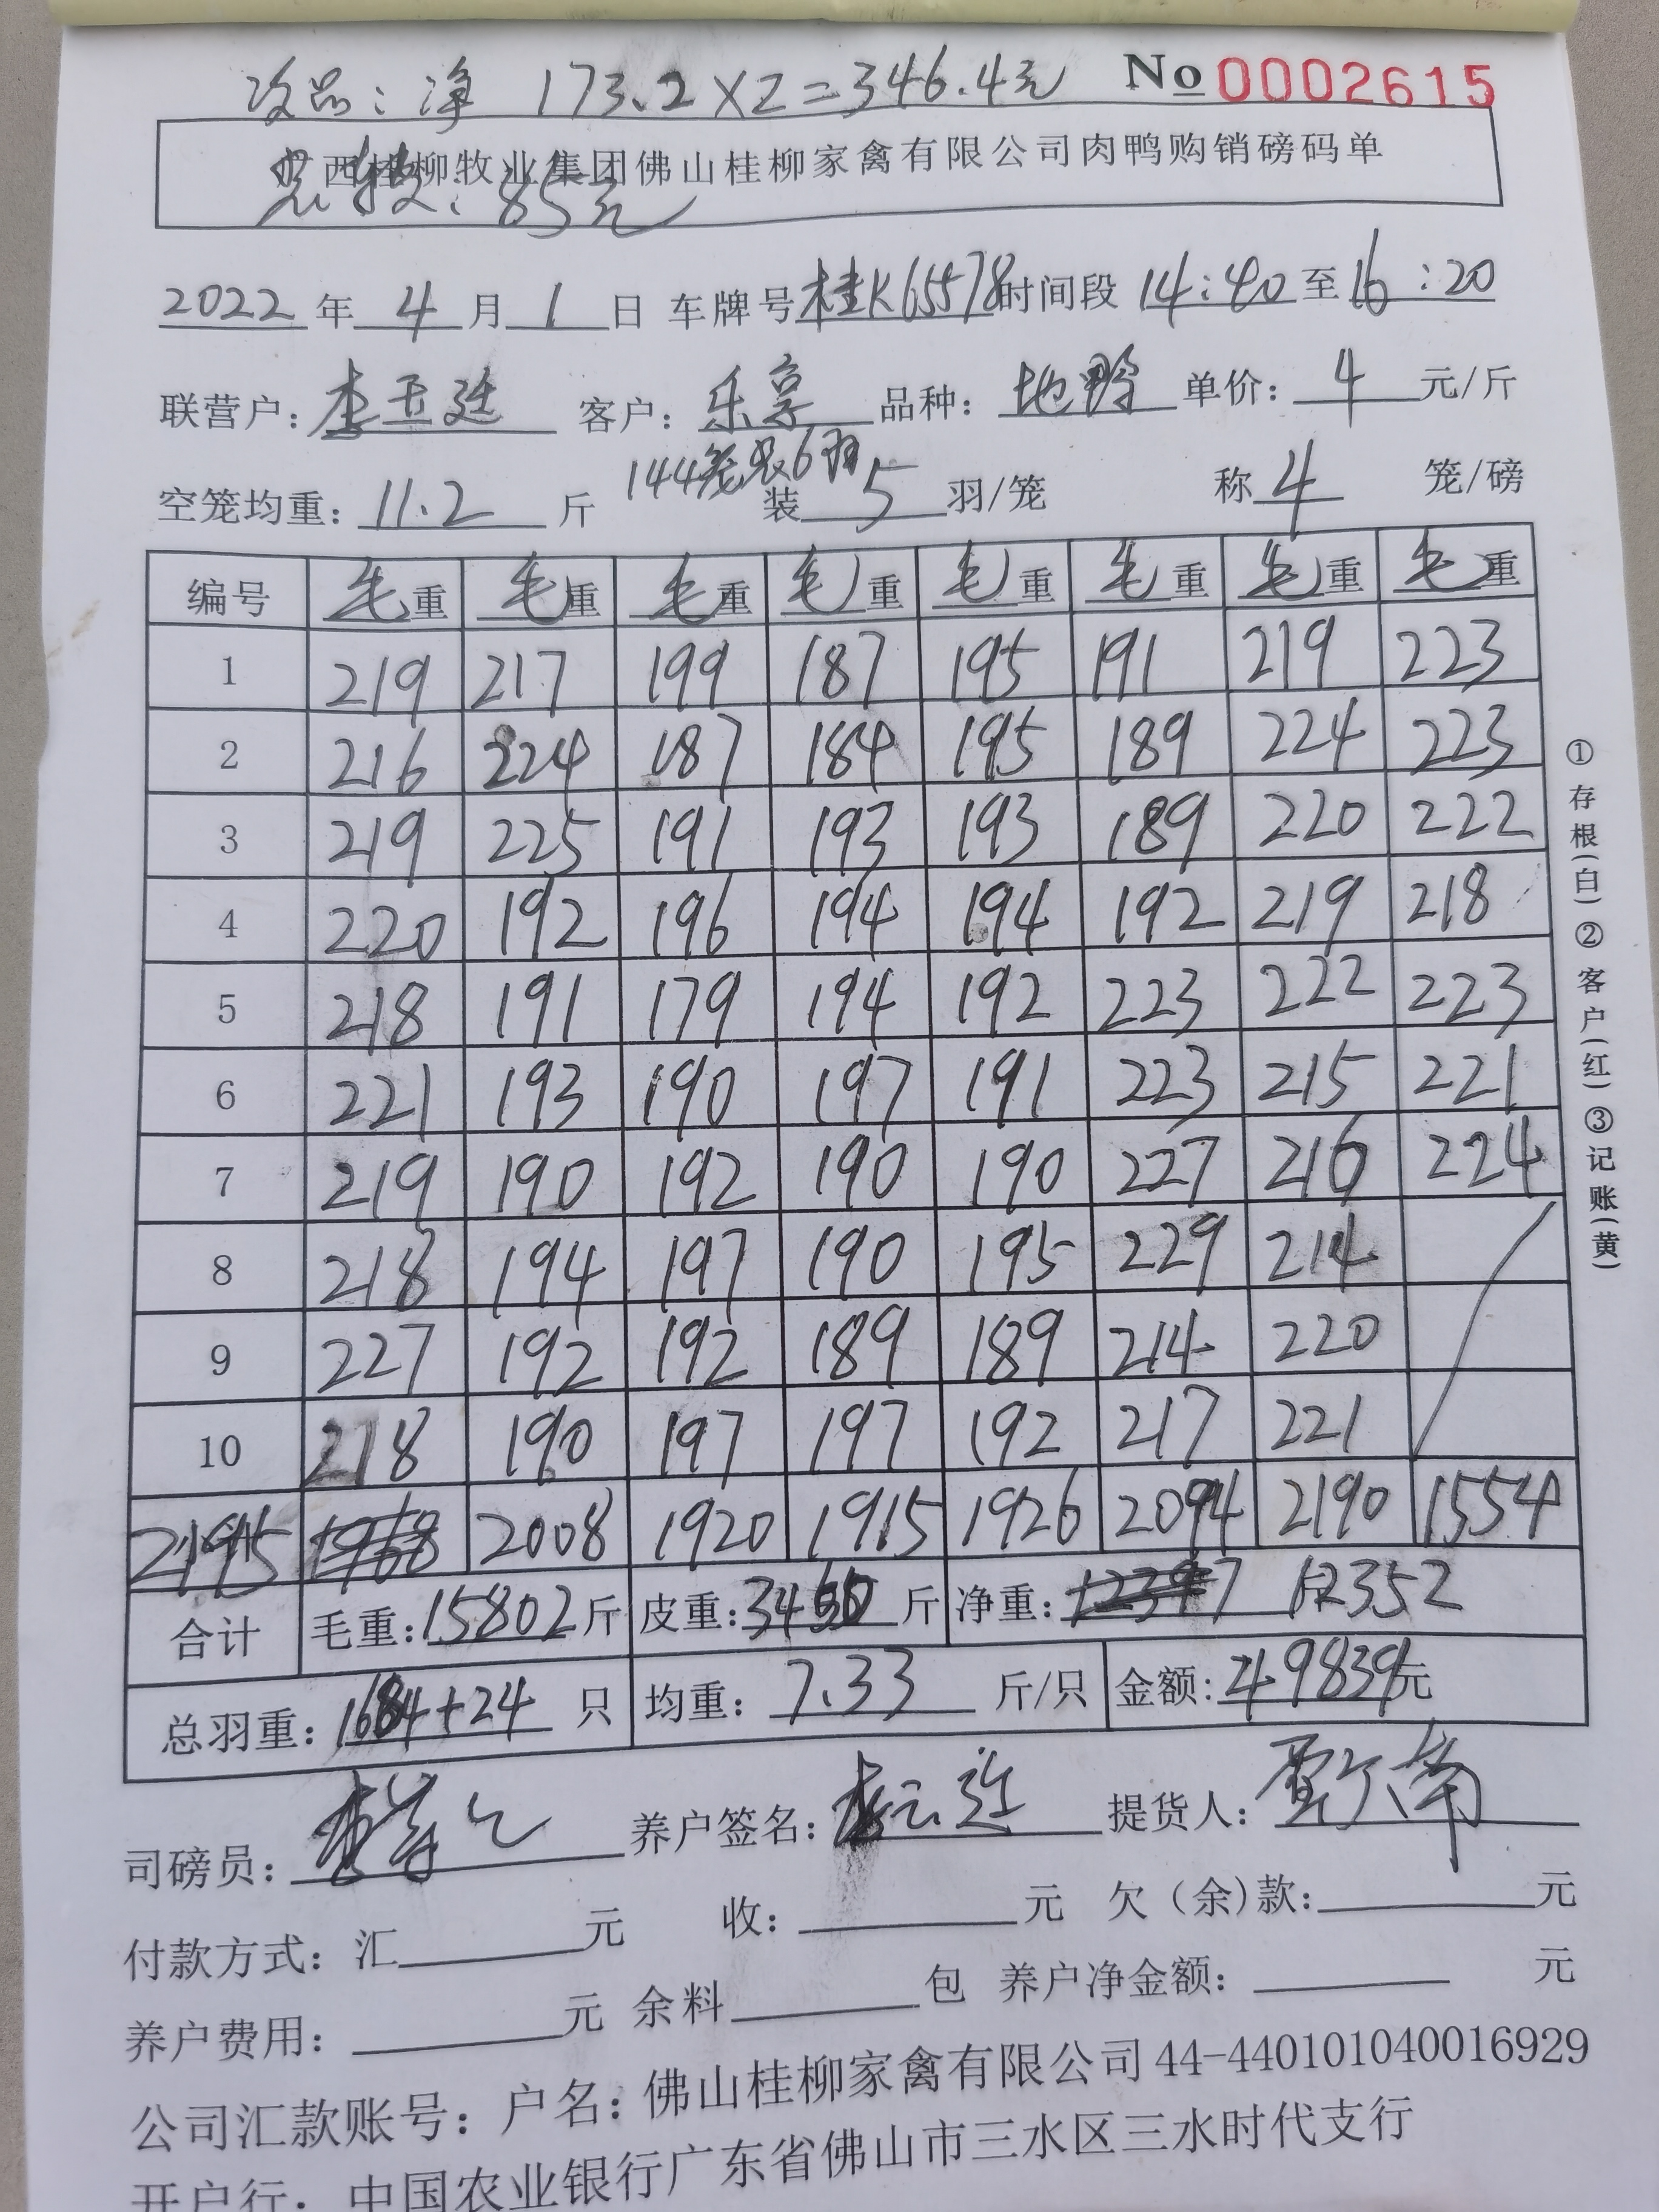 次品：净 173.2×2=346.4元 No 0002615
广西桂柳牧业集团佛山桂柳家禽有限公司肉鸭购销磅码单
85元
2022 年 4 月 1 日 车牌号 桂K65578 时间段 14:40 至 16:20
联营户: 李玉廷 客户: 乐享 品种: 单价: 4 元/斤
144笼装6羽
空笼均重: 11.2 斤 装 5 羽/笼 称 4 笼/磅
编号 毛重 毛重 毛重 毛重 毛重 毛重 毛重 毛重
1 219 217 199 187 195 191 219 223
2 216 224 187 184 195 189 224 223
3 219 225 191 193 193 189 220 222
4 220 192 196 194 194 192 219 218
5 218 191 179 194 192 223 222 223
6 221 193 190 197 191 223 215 221
7 219 190 192 190 190 227 216 224
8 218 194 197 190 195 229 214
9 227 192 192 189 189 214 220
10 218 190 197 197 192 217 221
2195 1968 2008 1920 1915 1926 2094 2190 1554
合计 毛重: 15802 斤 皮重: 3450 斤 净重: 12352
总羽重: 1684+24 只 均重: 7.33 斤/只 金额: 49839元
司磅员: 养户签名: 提货人:
付款方式: 汇 元 收: 元 欠(余)款: 元
养户费用: 元 余料 包 养户净金额: 元
公司汇款账号: 户名: 佛山桂柳家禽有限公司 44-440101040016929
开户行: 中国农业银行广东省佛山市三水区三水时代支行
①存根(白)②客户(红)③记账(黄)